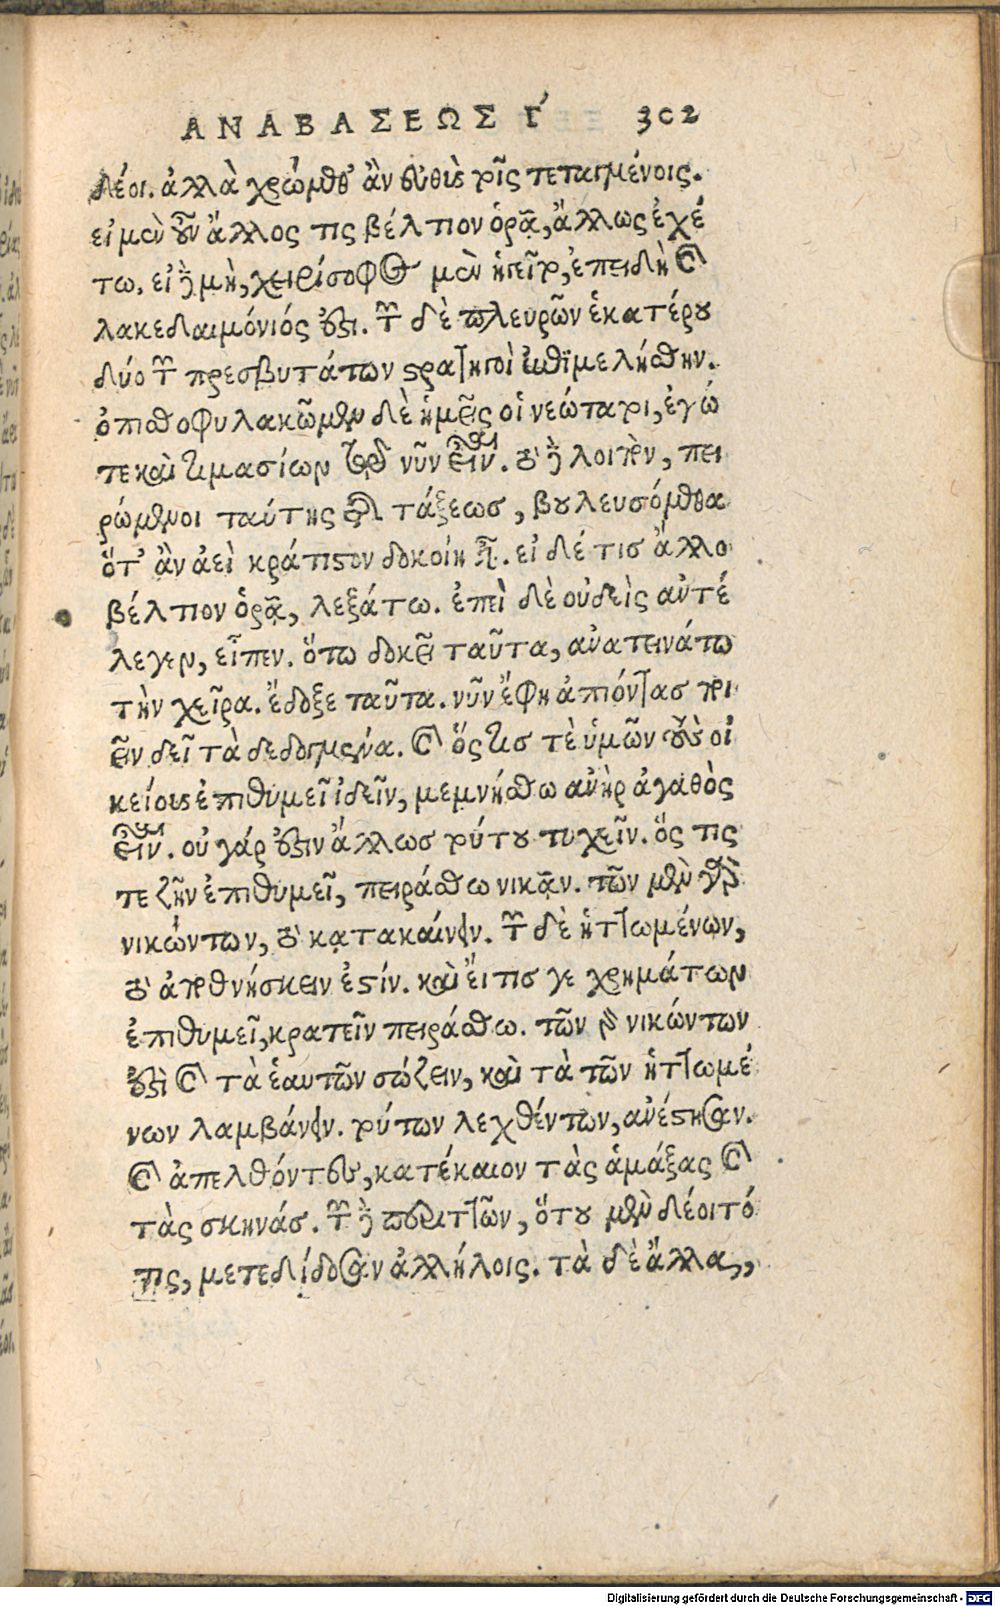 ΑΝΑΒΑΣΕΩΣ Γ´ 302
δέοι. ἀλλὰ χρώμεθ' ἂν εὐθὺς τοῖς τεταγμένοις.
εἰ μὲν οὖν ἄλλος τις βέλτιον ὁρᾷ, ἄλλως ἐχέ
τω. εἰ δὲ μὴ, χειρίσοφος μὲν ἡγεῖτο, ἐπειδὴ καὶ
λακεδαιμόνιός ἐστι. τῶν δὲ πλευρῶν ἑκατέρου
δύο τῶν πρεσβυτάτων στρατηγοὶ ἐπιμελήσθην.
ὀπισθοφυλακῶμεν δὲ ἡμεῖς οἱ νεώτατοι, ἐγώ
τε καὶ τιμασίων τὸ νῦν εἶναι. τὸ δὲ λοιπὸν, πει
ρώμενοι ταύτης τῆς τάξεως, βουλευσόμεθα
ὅτ' ἂν ἀεὶ κράτιστον δοκοίη εἶναι. εἰ δέ τις ἄλλο
βέλτιον ὁρᾷ, λεξάτω. ἐπεὶ δὲ οὐδεὶς ἀντέ
λεγεν, εἶπεν. ὅτῳ δοκεῖ ταῦτα, ἀνατεινάτω
τὴν χεῖρα. ἔδοξε ταῦτα. νῦν ἔφη ἀπιόντας ποι
εῖν δεῖ τὰ δεδογμένα. καὶ ὅς τις τὲ ὑμῶν τοὺς οἰ
κείους ἐπιθυμεῖ ἰδεῖν, μεμνήσθω ἀνὴρ ἀγαθὸς
εἶναι. οὐ γάρ ἐστιν ἄλλως τούτου τυχεῖν. ὅς τις
τε ζῆν ἐπιθυμεῖ, πειράσθω νικᾶν. τῶν μὲν γὰρ
νικώντων, τὸ κατακαίνειν. τῶν δὲ ἡττωμένων,
τὸ ἀποθνήσκειν ἐστίν. καὶ εἴ τις γε χρημάτων
ἐπιθυμεῖ, κρατεῖν πειράσθω. τῶν γὰρ νικώντων
ἐστὶ καὶ τὰ ἑαυτῶν σώζειν, καὶ τὰ τῶν ἡττωμέ
νων λαμβάνειν. τούτων λεχθέντων, ἀνέστησαν.
καὶ ἀπελθόντες, κατέκαιον τὰς ἁμάξας καὶ
τὰς σκηνάς. τῶν δὲ περιττῶν, ὅτου μὲν δέοιτό
τις, μετεδίδοσαν ἀλλήλοις. τὰ δὲ ἄλλα,
Digitalisierung gefördert durch die Deutsche Forschungsgemeinschaft - DFG